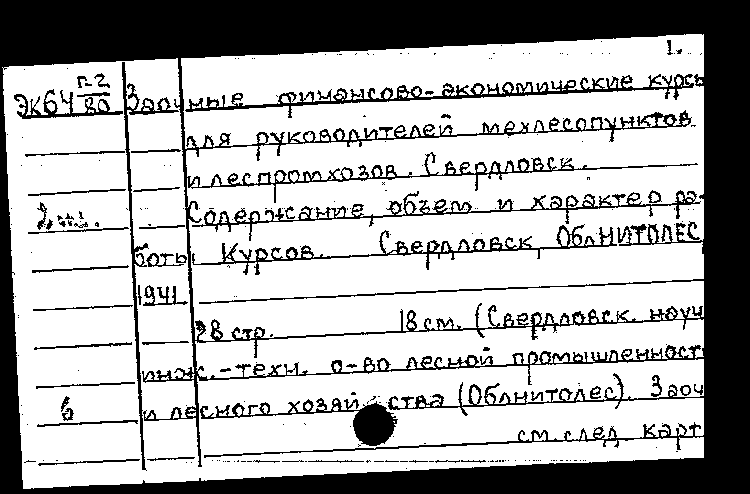 1.
п-2
Эк64 80 Заочные финансово-экономические курсы
для руководителей мехлесопунктов
и леспромхозов. Свердловск.
2
Содержание, объем и характер ра-
боты Курсов. Свердловск, ОблНИТОЛЕС,
1941
28 стр. 18 см. (Свердловск. науч
инж.-техн. о-во лесной промышленност
6 и лесного хозяйства (Облнитолес). Заоч
см. след. карт